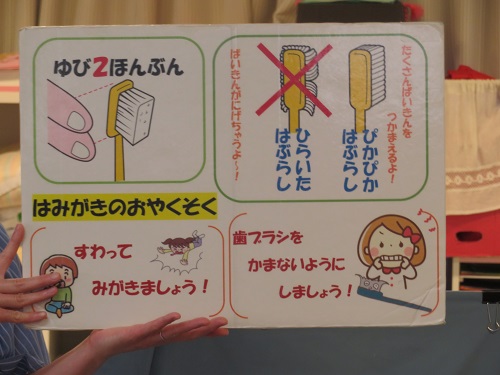 ゆび2ほんぶん
たくさんばいきんを
つかまえるよ！
ぴかぴか
はぶらし
ひらいた
はぶらし
ばいきんがにげちゃうよ～！
はみがきのおやくそく
すわって
みがきましょう！
歯ブラシを
かまないように
しましょう！